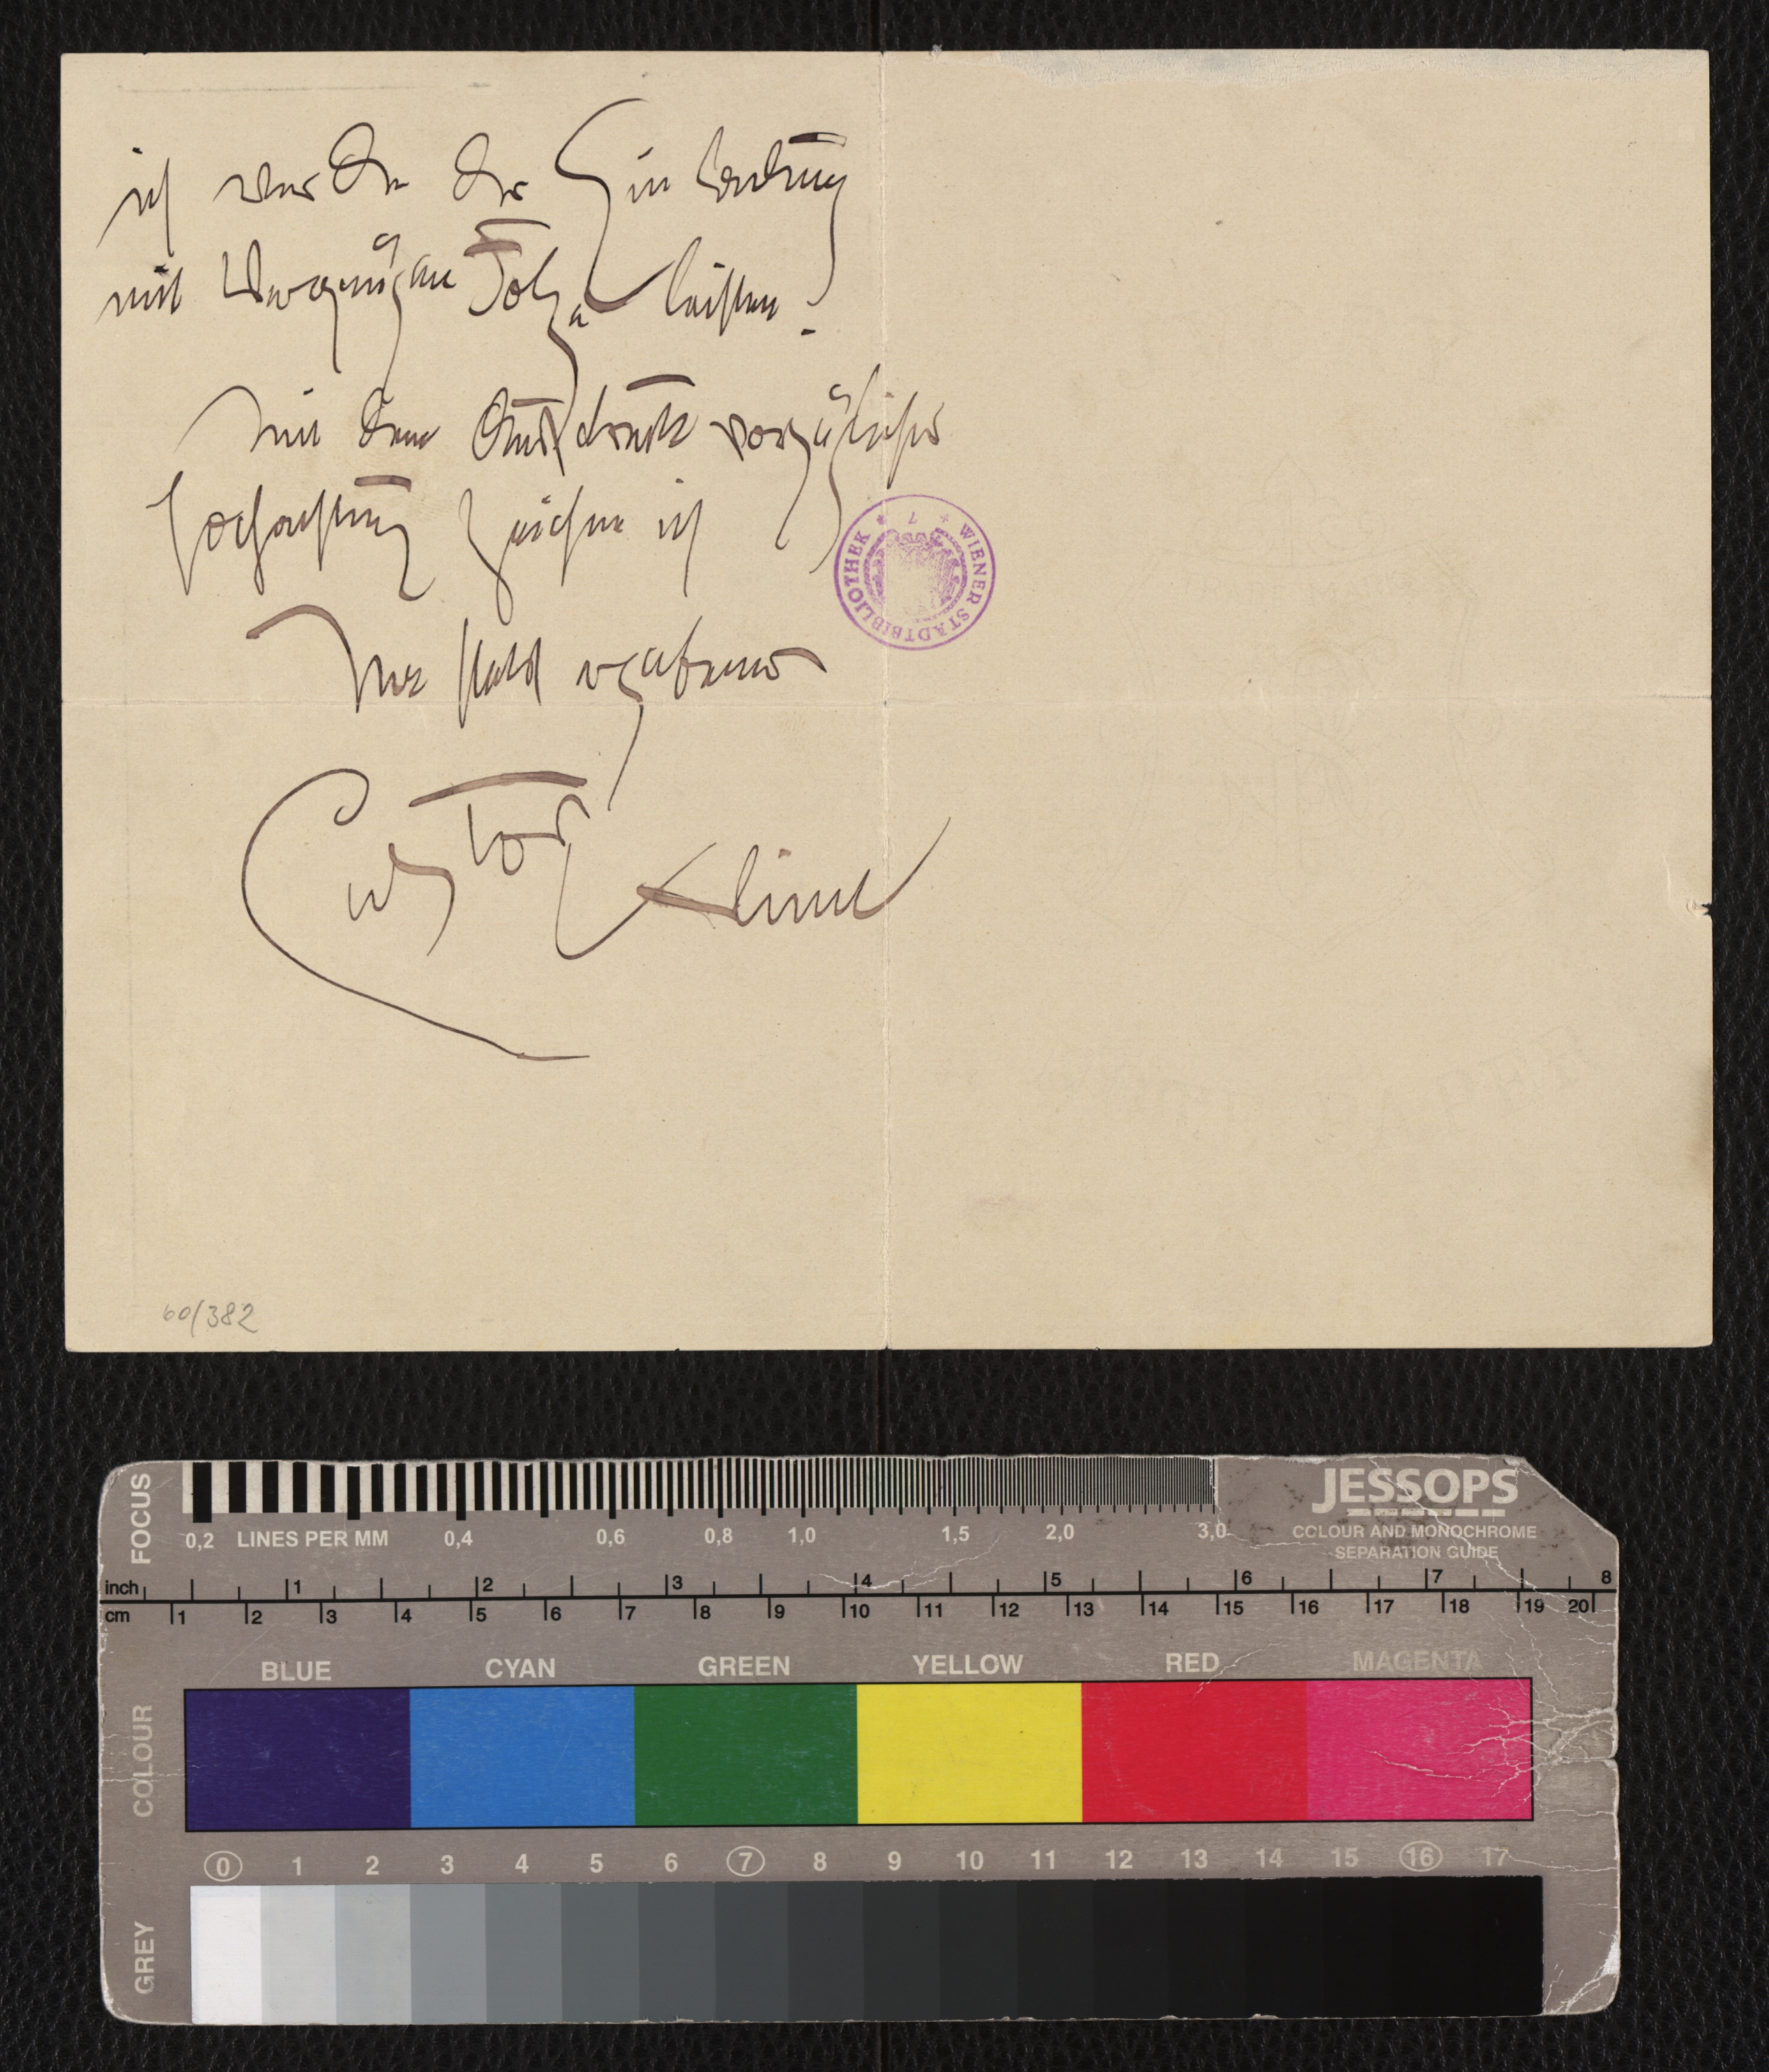 ich werde der Einladung
mit Vergnügen Folge leisten.
Mit dem Ausdruck vorzüglicher
Hochachtung zeichne ich
Ihr stets ergebener
Gustav Klimt
WIENER STADTBIBLIOTHEK
60/382
FOCUS
0,2 LINES PER MM 0,4 0,6 0,8 1,0 1,5 2,0 3,0
JESSOPS
COLOUR AND MONOCHROME
SEPARATION GUIDE
inch 1 2 3 4 5 6 7 8
cm 1 2 3 4 5 6 7 8 9 10 11 12 13 14 15 16 17 18 19 20
BLUE CYAN GREEN YELLOW RED MAGENTA
COLOUR
0 1 2 3 4 5 6 7 8 9 10 11 12 13 14 15 16 17
GREY